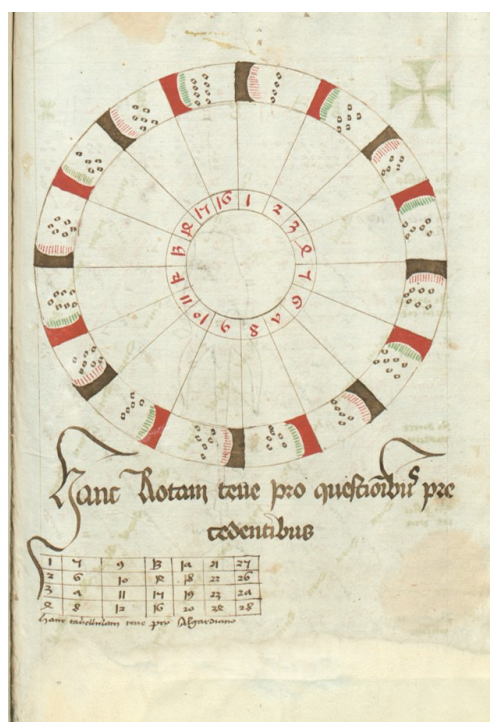 1 2 3 4 5 6 7 8 9 10 11 12 13 14 15 16
Hanc Rotam tene pro questioībus pre
cedentibus
1 5 9 13 17 21 25
2 6 10 14 18 22 26
3 7 11 15 19 23 27
4 8 12 16 20 24 28
Hanc tene pro